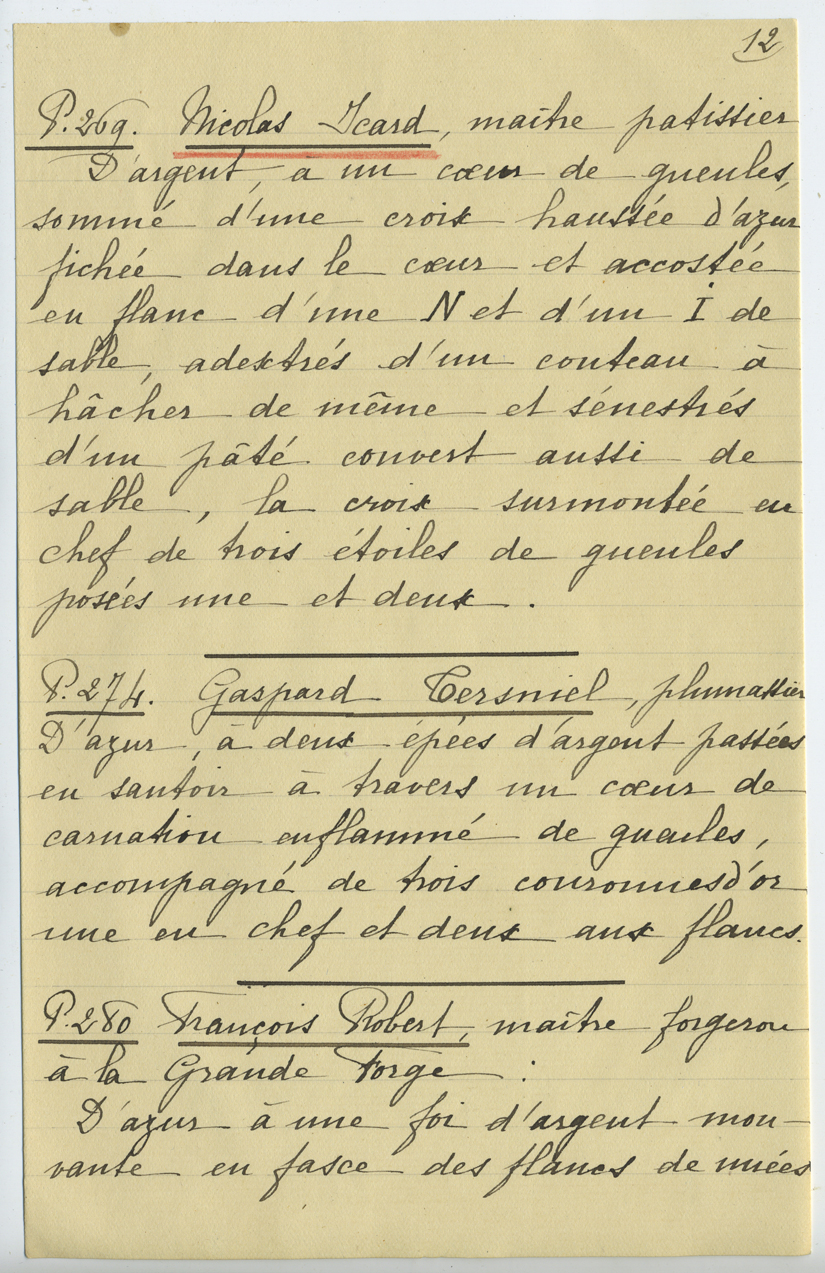 12
P. 269. Nicolas Icard, maître patissier
D'argent, à un cœur de gueules,
sommé d'une croix haussée d'azur
fichée dans le cœur et accostée
en flanc d'une N et d'un I de
sable, adextrés d'un couteau à
hâcher de même et sénestrés
d'un pâté couvert aussi de
sable, la croix surmontée en
chef de trois étoiles de gueules
posées une et deux.
P. 274. Gaspard Tersniel, plumassier
D'azur, à deux épées d'argent passées
en sautoir à travers un cœur de
carnation enflammé de gueules,
accompagné de trois couronnes d'or
une en chef et deux aux flancs.
P. 280 François Robert, maître forgeron
à la Grande Forge :
D'azur à une foi d'argent mou-
vante en fasce des flancs de nuées